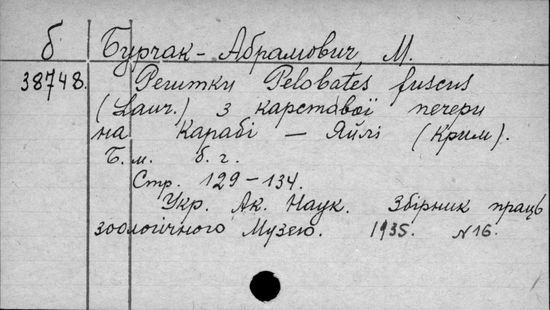 б Бурчак-Абрамович, М.
38748. Рештки Pelobates fuscus
(Laur.) з карстової печери
на Карабі — Яйлі (Крим).
Б. м. б. г.
Стр. 129-134.
Укр. Ак. Наук. Збірник праць
зоологічного Музею. 1935. №16.